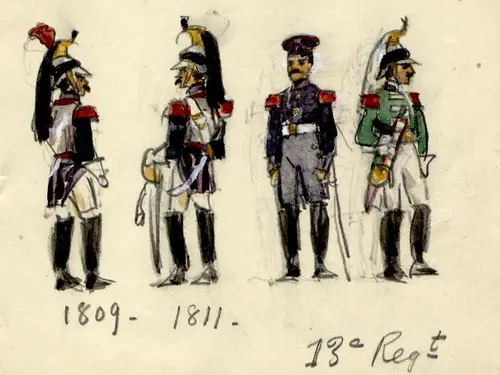 1809- 1811.
13e Regt